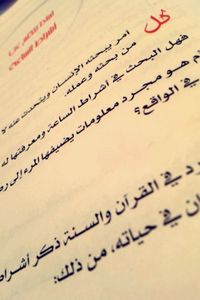 كل
امر يبحثه الإنسان ويتحدث عنه لا
من بحثه وعمله.
فهل البحث في اشراط الساعة ومعرفتها له
هو مجرد معلومات يضيفها المرء إلى
في الواقع؟
في القرآن والسنة ذكر أشراط
في حياته، من ذلك: